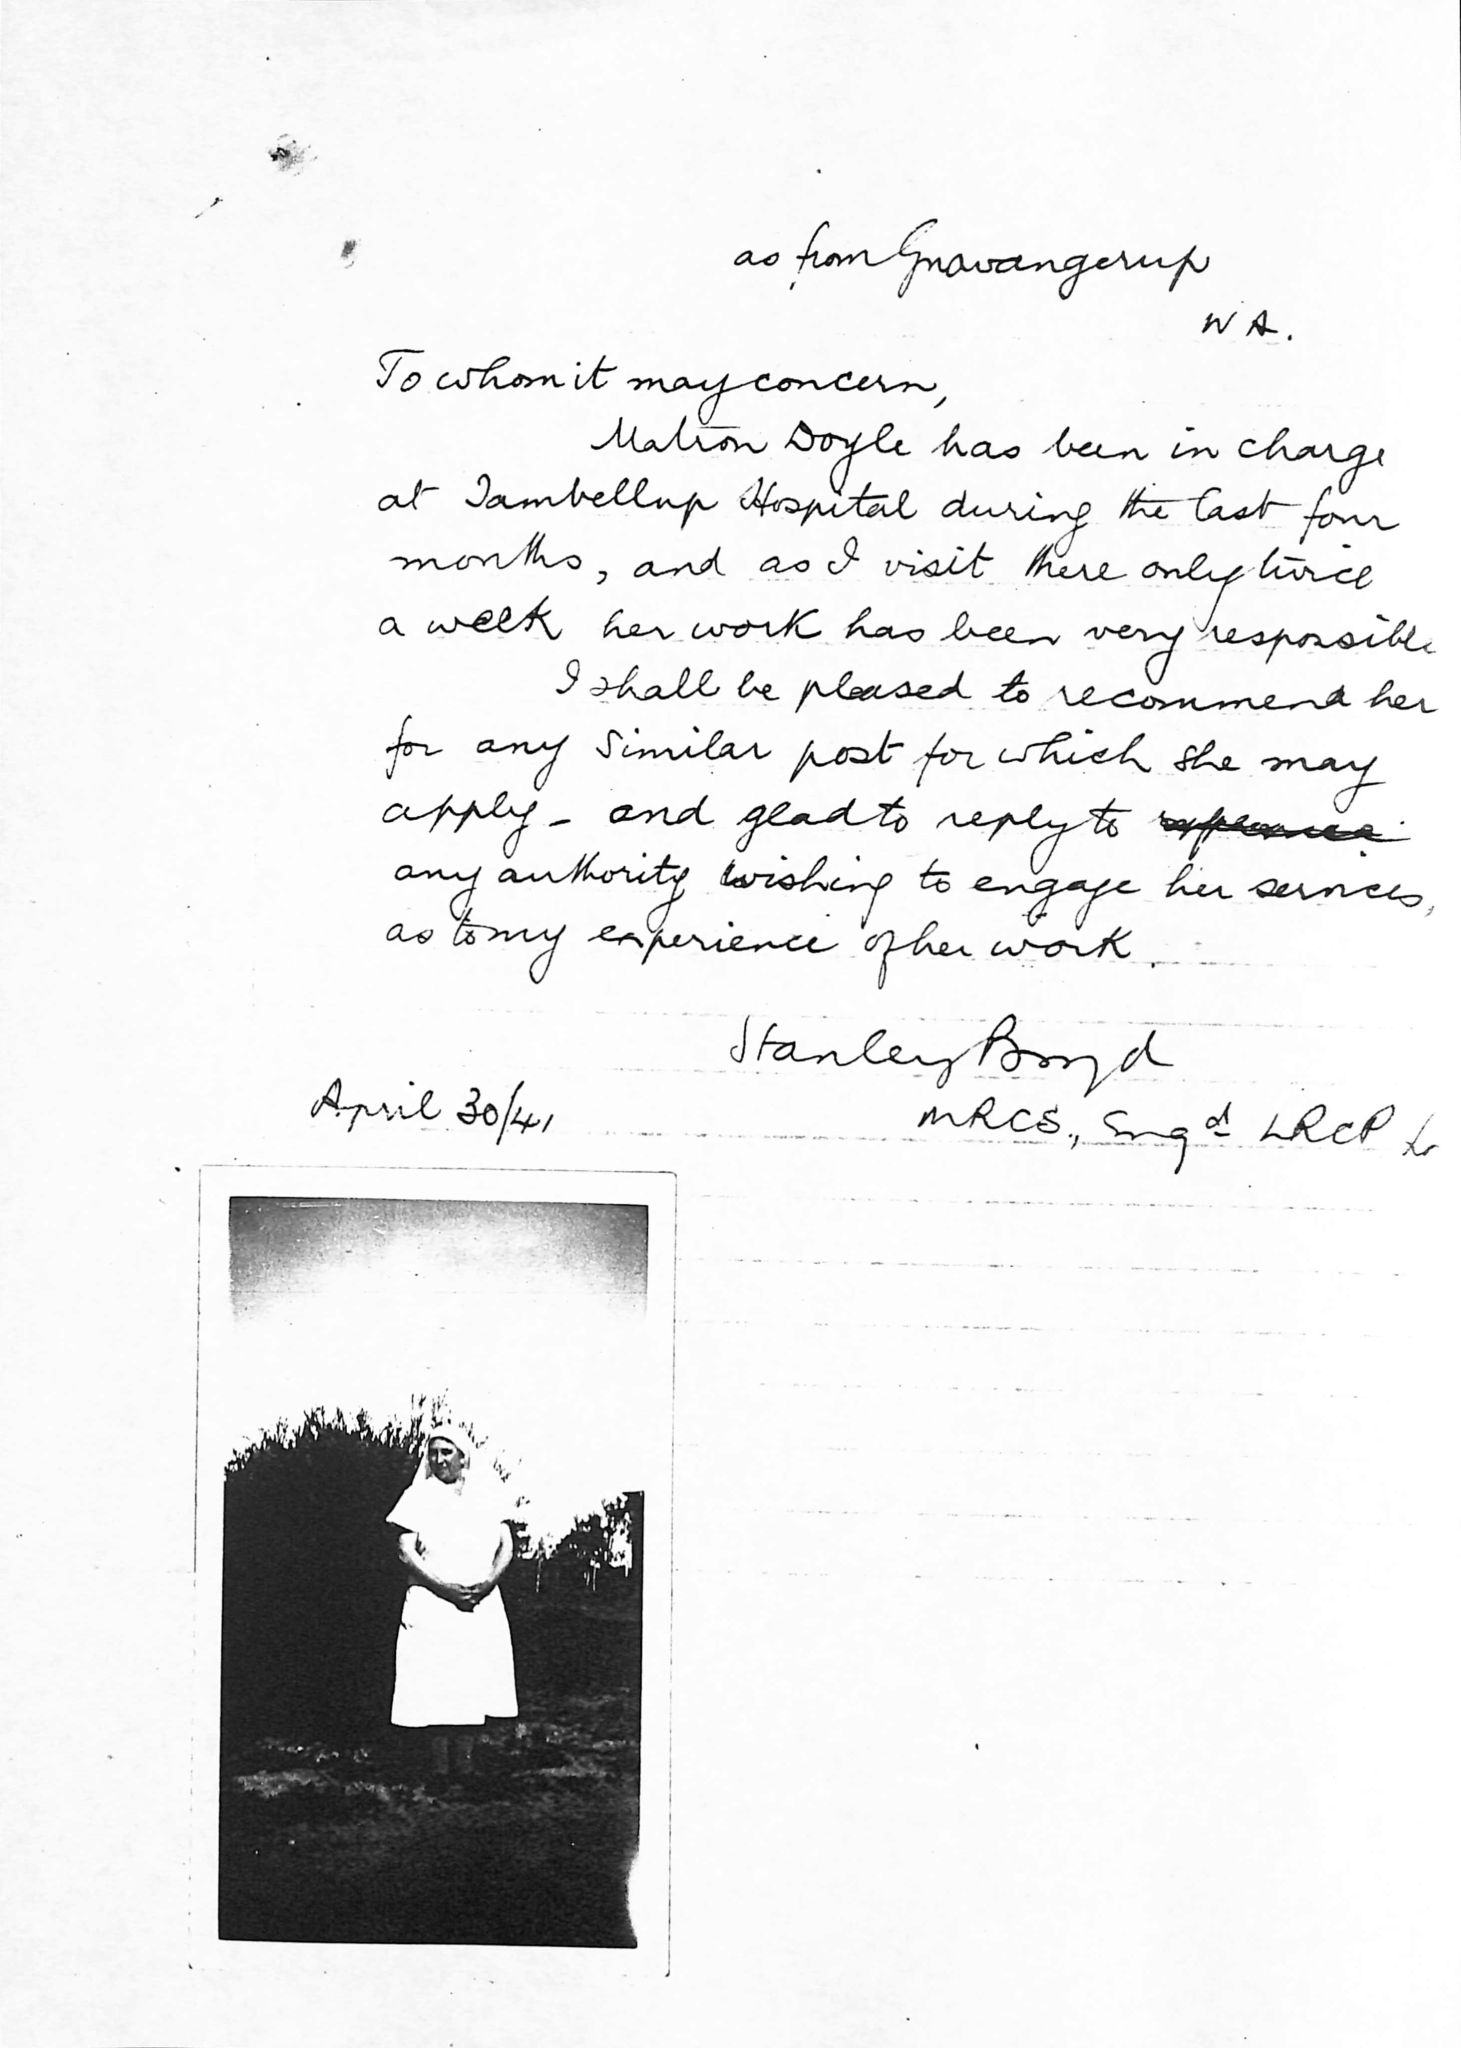 as from Gnowangerup
W A.
To whom it may concern,
Matron Doyle has been in charge
at Tambellup Hospital during the last four
months, and as I visit there only twice
a week her work has been very responsible
I shall be pleased to recommend her
for any similar post for which she may
apply - and glad to reply to
any authority wishing to engage her services,
as to my experience of her work.
Stanley Boyd
April 30/41
MRCS., Engd LRCP Lo